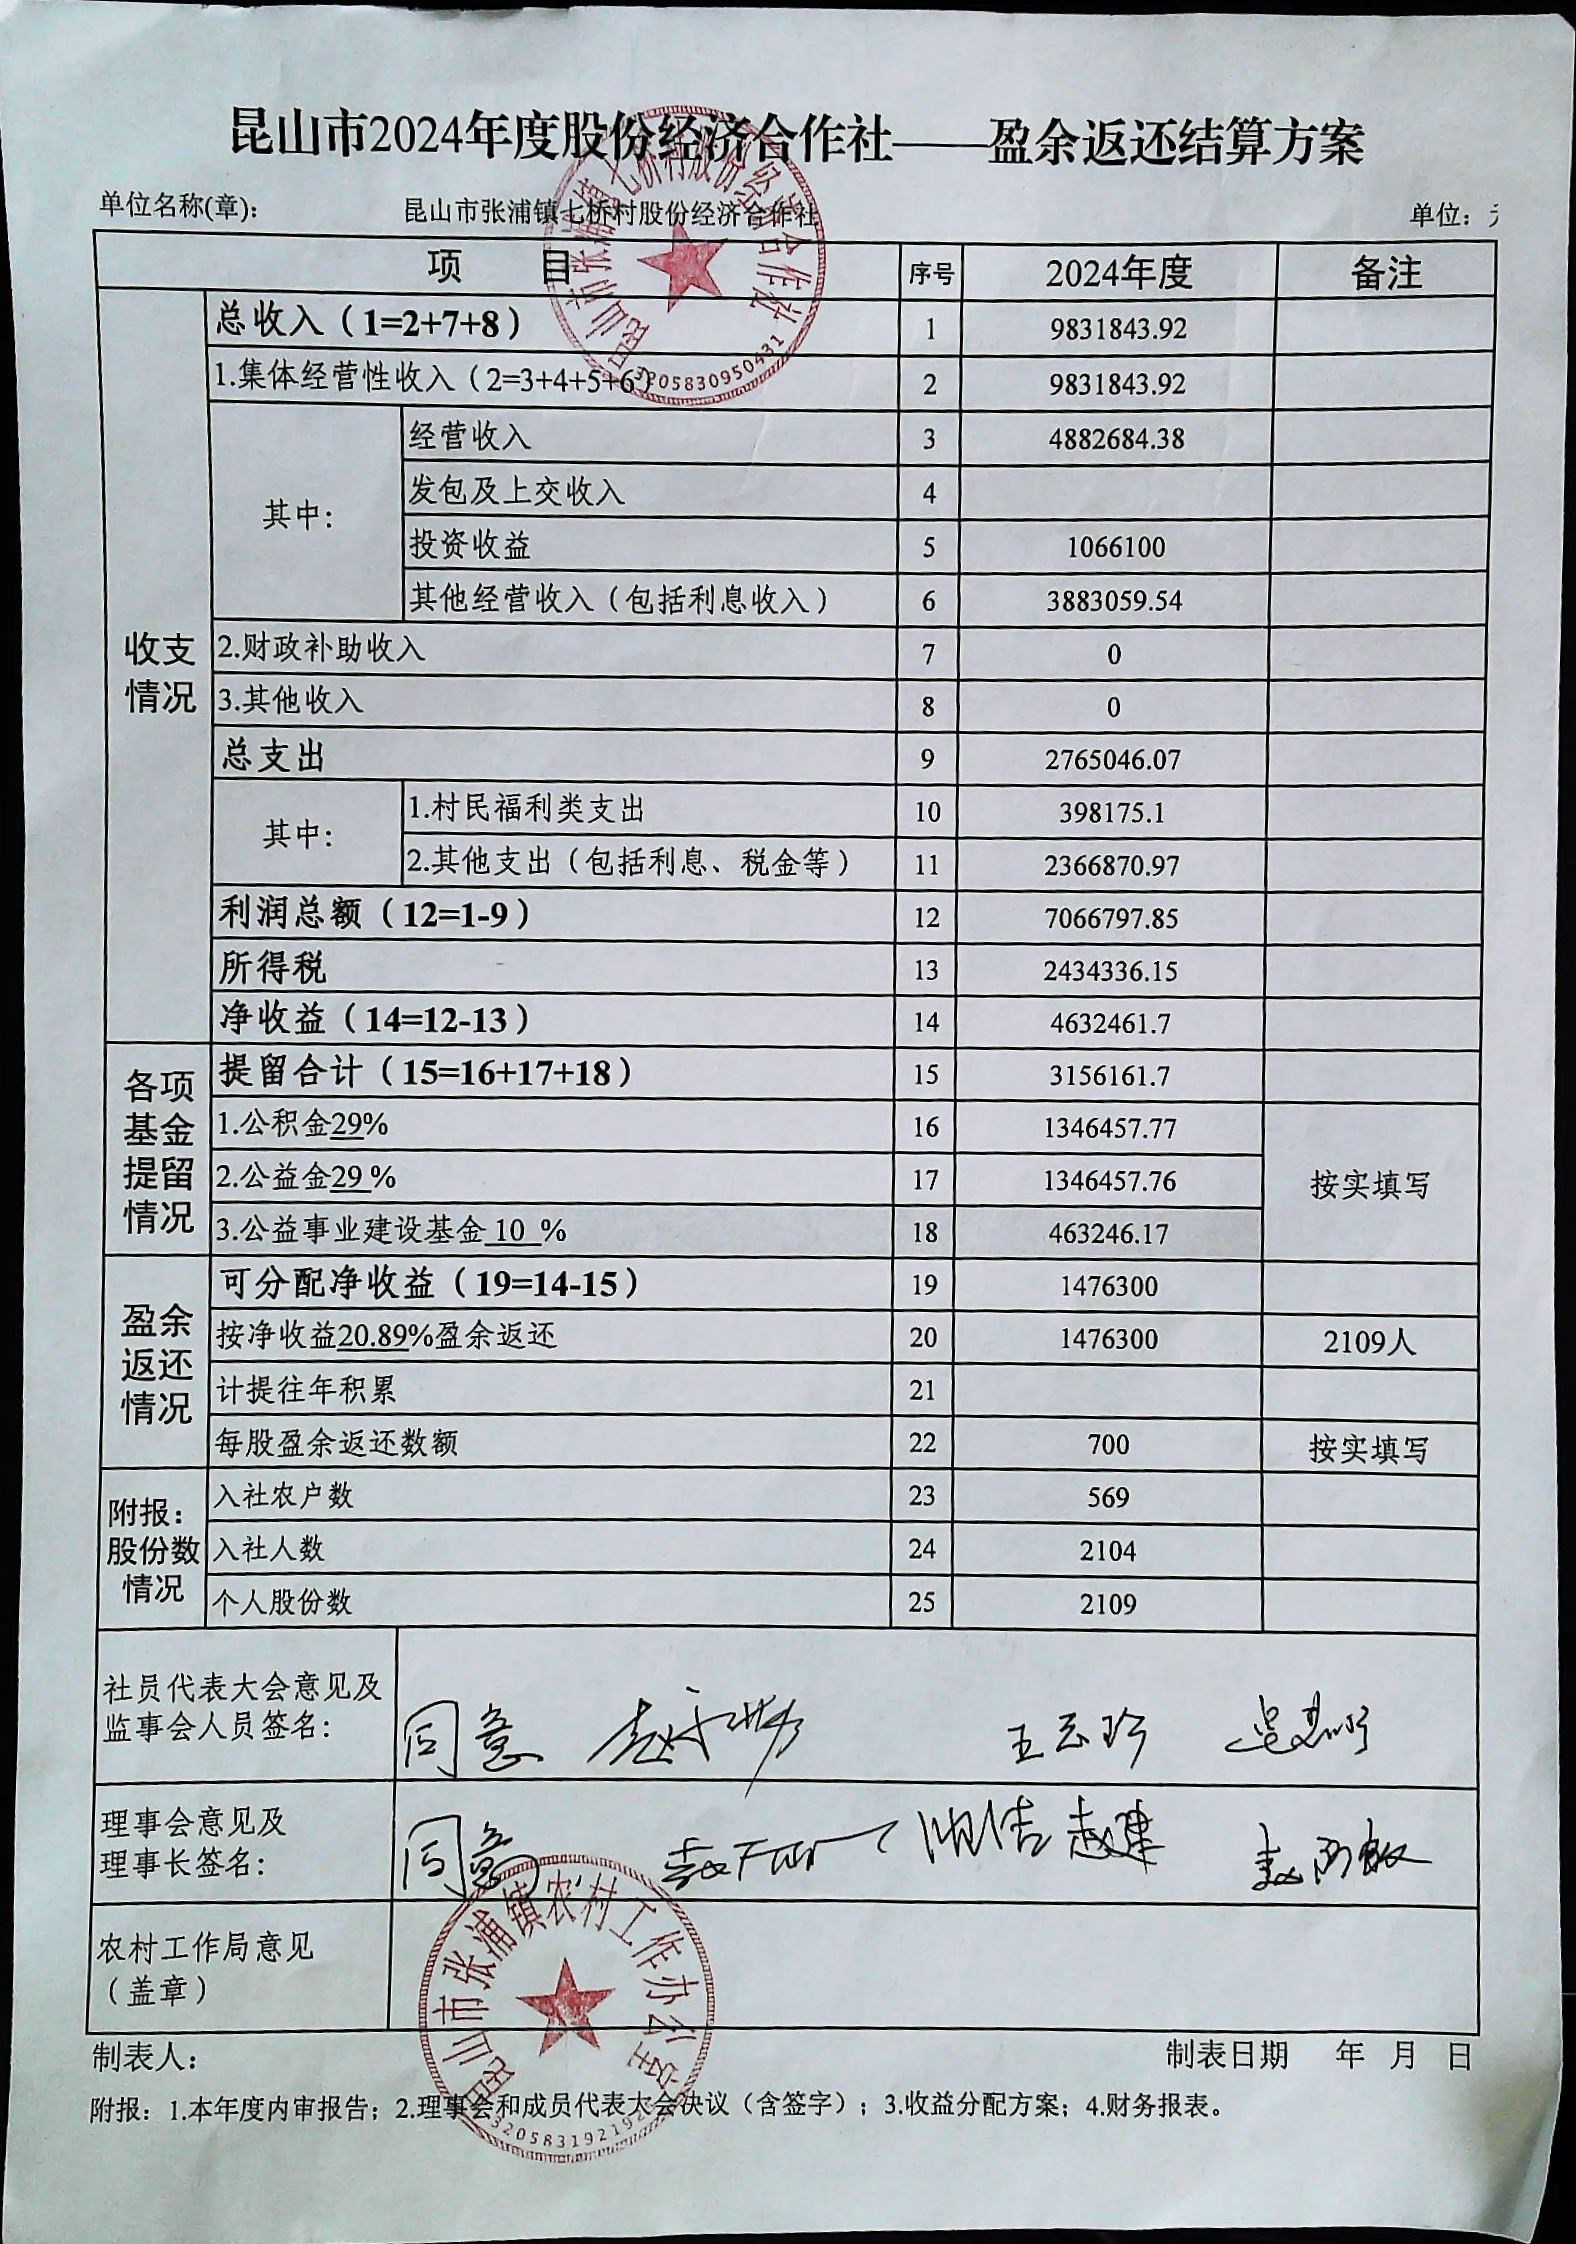 昆山市2024年度股份经济合作社——盈余返还结算方案
单位名称(章): 昆山市张浦镇七桥村股份经济合作社 单位:
项 目 序号 2024年度 备注
收支情况
总收入（1=2+7+8） 1 9831843.92
1.集体经营性收入（2=3+4+5+6） 2 9831843.92
其中:
经营收入 3 4882684.38
发包及上交收入 4
投资收益 5 1066100
其他经营收入（包括利息收入） 6 3883059.54
2.财政补助收入 7 0
3.其他收入 8 0
总支出 9 2765046.07
其中:
1.村民福利类支出 10 398175.1
2.其他支出（包括利息、税金等） 11 2366870.97
利润总额（12=1-9） 12 7066797.85
所得税 13 2434336.15
净收益（14=12-13） 14 4632461.7
各项基金提留情况
提留合计（15=16+17+18） 15 3156161.7
1.公积金29% 16 1346457.77 按实填写
2.公益金29 % 17 1346457.76
3.公益事业建设基金 10 % 18 463246.17
盈余返还情况
可分配净收益（19=14-15） 19 1476300
按净收益20.89%盈余返还 20 1476300 2109人
计提往年积累 21
每股盈余返还数额 22 700 按实填写
附报：股份数情况
入社农户数 23 569
入社人数 24 2104
个人股份数 25 2109
社员代表大会意见及
监事会人员签名: 同意 王云珍
理事会意见及
理事长签名: 同意 赵建
农村工作局意见
（盖章）
制表人: 制表日期 年 月 日
附报：1.本年度内审报告；2.理事会和成员代表大会决议（含签字）；3.收益分配方案；4.财务报表。
昆山市张浦镇七桥村股份经济合作社
3205830950431
昆山市张浦镇农村工作办公室